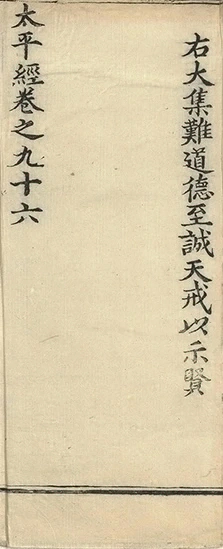 右大集難道德至誠天戒以示賢
太平經卷之九十六